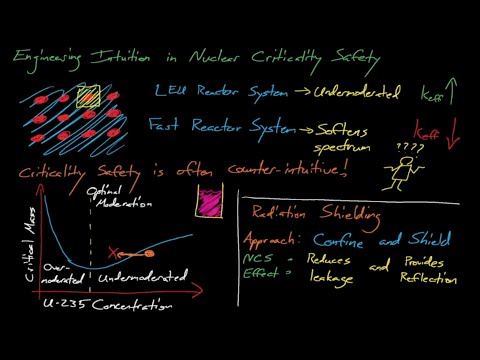 Engineering Intuition in Nuclear Criticality Safety
LEU Reactor System → Undermoderated
keff ↑
Fast Reactor System → Softens spectrum
keff ↓
? ? ? ?
Criticality Safety is often counter-intuitive!
Optimal Moderation
Critical Mass
X
Over-moderated
Undermoderated
U-235 Concentration
Radiation Shielding
Approach: Confine and Shield
NCS Effect = Reduces leakage and Provides Reflection